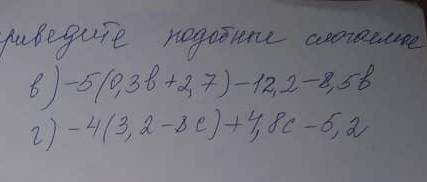 риведите подобные слагаемые
в) -5(0,3в+2,7)-12,2-8,5в
г) -4(3,2-8с)+4,8с-5,2